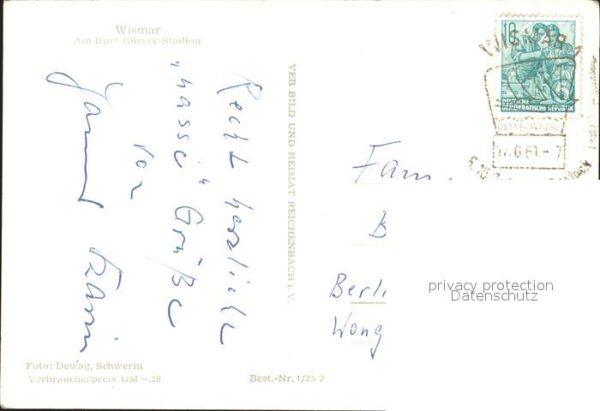 Wismar
Am Kurt-Bürger-Stadion
Recht herzliche
„nasse“ Grüße
von
VEB BILD UND HEIMAT REICHENBACH i. V.
Foto: Dewag, Schwerin
Verbraucherpreis DM -,20
Best.-Nr. 1/25 2
10
DEUTSCHE
DEMOKRATISCHE REPUBLIK
WISMAR 1
OSTSEEWOCHE
Fam.
B
Berli
Wong
privacy protection
Datenschutz